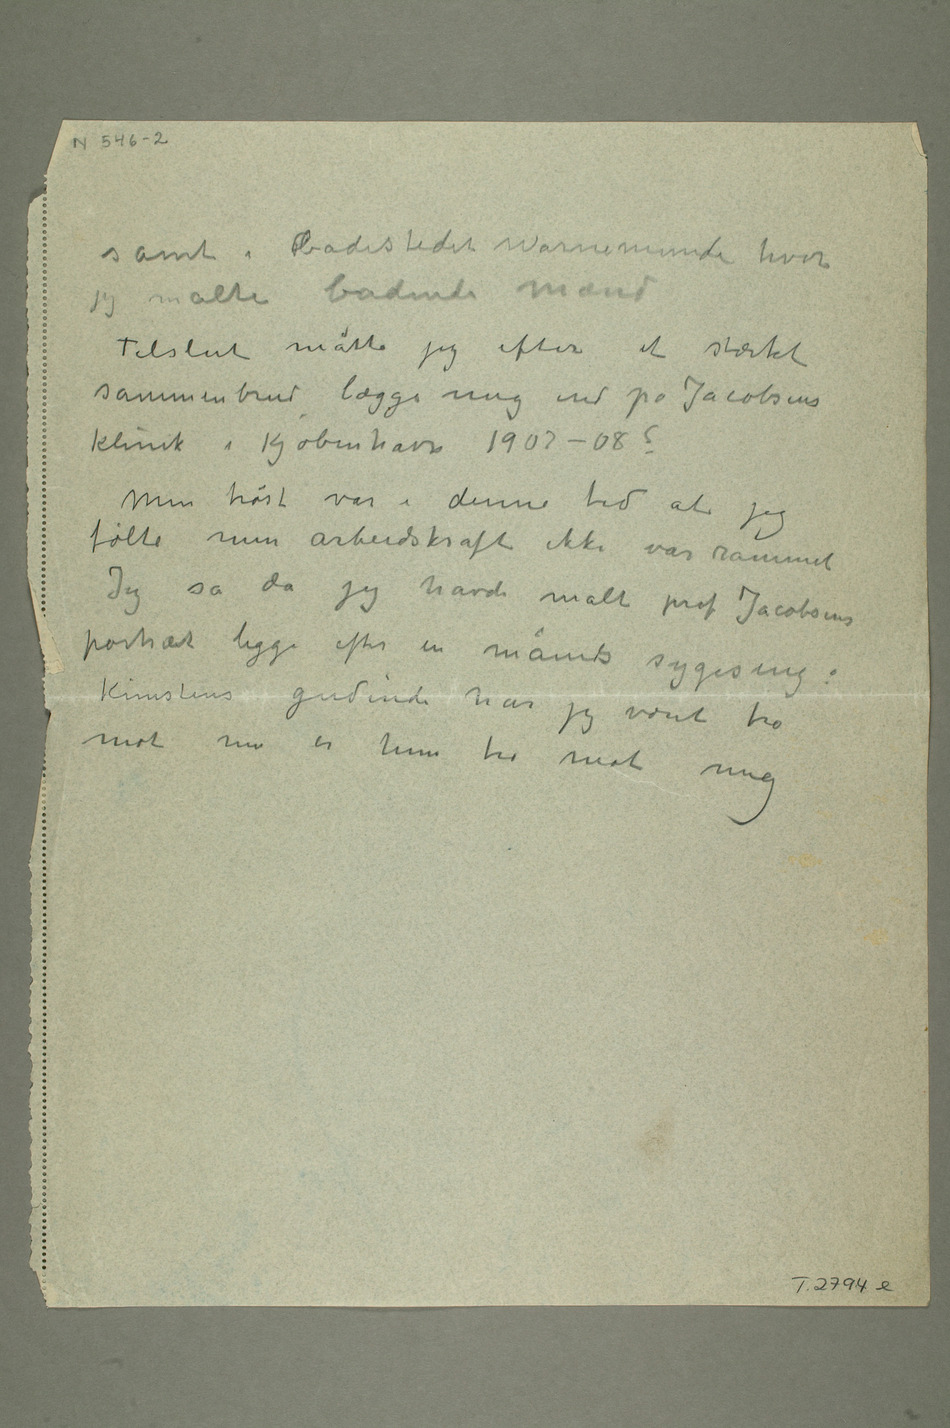 N 546-2
samt i Badestedet Warnemunde hvor
jeg malte badende mænd
Tilslut måtte jeg efter et stærkt
sammenbrud lægge mig ind på Jacobsens
Klinik i Kjøbenhavn 1907–08?
Min trøst var i denne tid at jeg
følte min arbeidskraft ikke var rammet
Jeg sa da jeg havde malt prof Jacobsens
portræt ligge efter en måneds sygeseng:
Kunstens gudinde har jeg vært tro
mot nu er hun tro mot mig
T. 2794 e